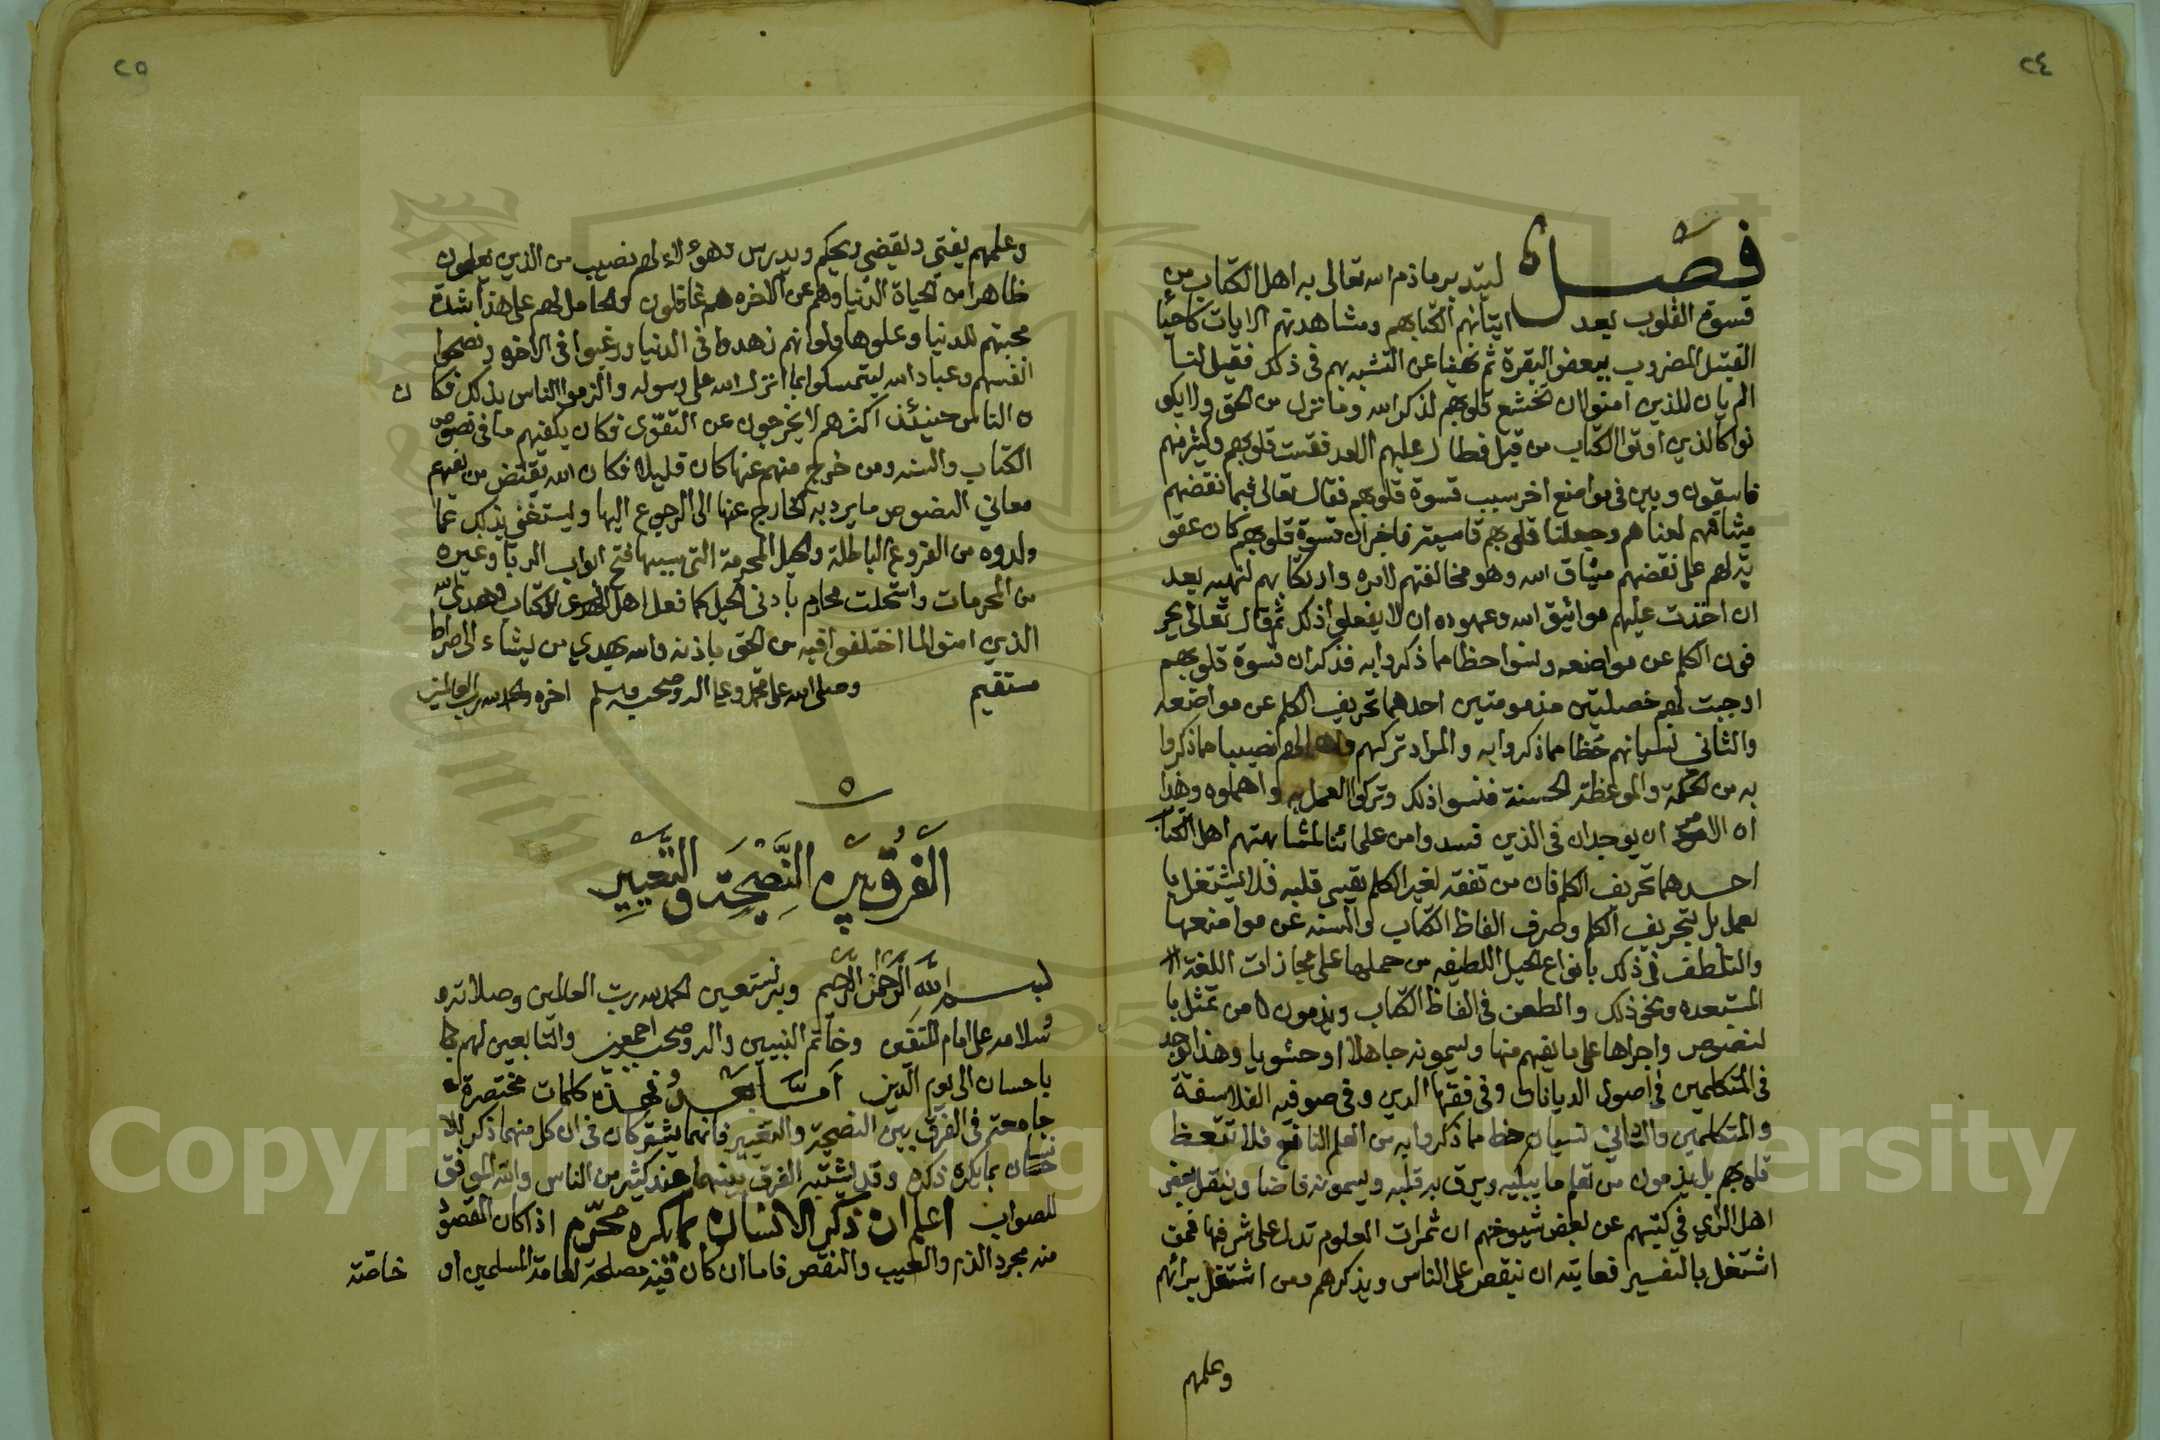 ٢٤
فصل ليتدبر ما ذم الله تعالى به اهل الكتاب من
قسوة القلوب بعد ايتائهم الكتاب ومشاهدتهم الايات كاحيا
القتيل المضروب ببعض البقرة ثم نهينا عن التشبه بهم في ذلك فقيل لنا
الم يان للذين امنوا ان تخشع قلوبهم لذكر الله وما نزل من الحق ولا يكو
نوا كالذين اوتوا الكتاب من قبل فطال عليهم الامد فقست قلوبهم وكثير منهم
فاسقون وبين في مواضع اخر سبب قسوة قلوبهم فقال تعالى فبما نقضهم
ميثاقهم لعناهم وجعلنا قلوبهم قاسية فاخبر ان قسوة قلوبهم كان عقو
بة لهم على نقضهم ميثاق الله وهو مخالفتهم لامره وارتكابهم لنهيه بعد
ان اخذت عليهم مواثيق الله وعهوده ان لا يفعلوا ذلك ثم قال تعالى يحر
فون الكلم عن مواضعه ونسوا حظا مما ذكروا به فذكر ان قسوة قلوبهم
اوجبت لهم خصلتين مذمومتين احدهما تحريف الكلم عن مواضعه
والثاني نسيانهم حظا مما ذكروا به والمراد تركهم واهمالهم نصيبا مما ذكروا
به من الحكمة والموعظة الحسنة فنسوا ذلك وتركوا العمل به واهملوه وهذا
ان الامرين ان يوجدان في الذين فسدوا من علمائنا لمشابهتهم اهل الكتاب
احدهما تحريف الكلم فان من تفقه لغير الكلم يقسى قلبه فلا يشتغل با
لعمل بل بتحريف الكلم وصرف الفاظ الكتاب والسنه عن مواضعها
والتلطف في ذلك بانواع الحيل اللطيفه من حملها على مجازات اللغة
المستبعده ونحو ذلك والطعن في الفاظ الكتاب ويذمون من تمثل با
لنصوص واجراها على ما يفهم منها ويسمونه جاهلا او حشويا وهذا يوجد
في المتكلمين في اصول الديانات وفي فقهاء الدين وفي صوفيه الفلاسفة
والمتكلمين والثاني نسيان حظ مما ذكروا به من العلم النافع فلا تتعظ
قلوبهم بل يذمون من تعلم ما يبكيه ويرق به قلبه ويسمونه قاصا وينقل بعض
اهل الراي في كتبهم عن بعض شيوخهم ان ثمرات العلوم تدل على شرفها فمن
اشتغل بالتفسير فغايته ان يقص على الناس ويذكرهم ومن اشتغل برائهم
وعلمهم
٢٥
وعلمهم يفتي ويقضي ويحكم ويدرس وهؤلاء لهم نصيب من الذين يعلمون
ظاهرا من الحياة الدنيا وهم عن الاخره هم غافلون والحامل لهم على هذا شدة
محبتهم للدنيا وعلوها ولو انهم زهدوا في الدنيا ورغبوا في الاخره ونصحوا
انفسهم وعباد الله ليتمسكوا بما انزل الله على رسوله والزموا الناس بذلك فكا ن
ن الناس حينئذ اكثرهم لا يخرجون عن التقوى فكان يكفيهم ما في نصوص
الكتاب والسنه ومن خرج منهم عنها كان قليلا فكان الله يقتض من يفهم
معاني النصوص ما يرد به الخارج عنها الى الرجوع اليها ويستغني بذلك عما
ولدوه من الفروع الباطلة والحيل المحرمة التي بسببها فتح ابواب الربا وغيره
من المحرمات واستحلت محارم بادنى الحيل كما فعل اهل الكتاب وهدى الله
الذين امنوا لما اختلفوا فيه من الحق باذنه والله يهدي من يشاء الى صراط
مستقيم وصلى الله على محمد وعلى اله وصحبه وسلم اخره والحمد لله رب العالمين
ه
الفرق بين النصيحة والتعيير
بسم الله الرحمن الرحيم وبه نستعين الحمد لله رب العالمين وصلاته
وسلامه على امام المتقين وخاتم النبيين واله وصحبه اجمعين والتابعين لهم
باحسان الى يوم الدين اما بعد فهذه كلمات مختصرة
جامعة في الفرق بين النصيحة والتعيير فانهما يشتركان في ان كل منهما ذكر للا
نسان بما يكره ذكره وقد يشتبه الفرق بينهما عند كثير من الناس والله الموفق
للصواب اعلم ان ذكر الانسان بما يكره محرم اذا كان المقصود
منه مجرد الذم والعيب والنقص فاما ان كان فيه مصلحة لعامة المسلمين او خاصة
Copyright © King Saud University